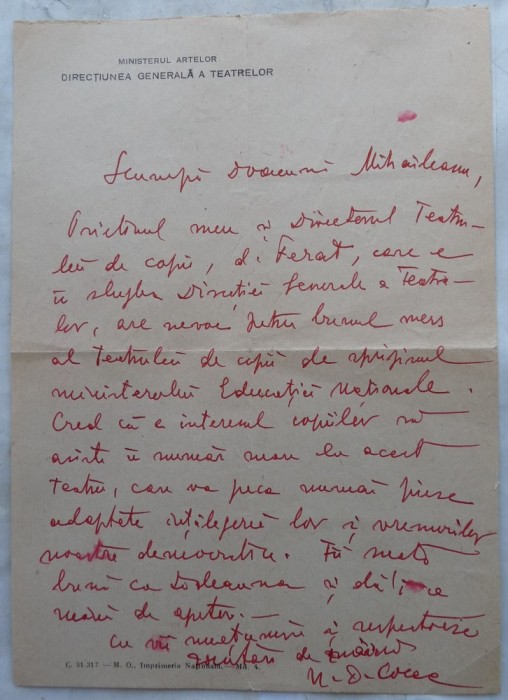 MINISTERUL ARTELOR
DIRECȚIUNEA GENERALĂ A TEATRELOR
Scumpă Mihăileanu,
Prietenul meu și Directorul Teatru-
lui de copii, d. Ferat, care e
în slujba Direcției Generale a Teatre-
lor, are nevoe pentru bunul mers
al Teatrului de copii de sprijinul
ministerului Educației Naționale.
Cred că e interesul copiilor să
asiste în număr mare la acest
Teatru, care va juca numai piese
adaptate înțelegerii lor și vremurilor
noastre democratice. Fii
bună ca totdeauna și
mână de ajutor. —
Cu vii mulțumiri și respectoase
N. D. Cocea
C. 31.317 — M. O., Imprimeria Națională. — Md. 4.